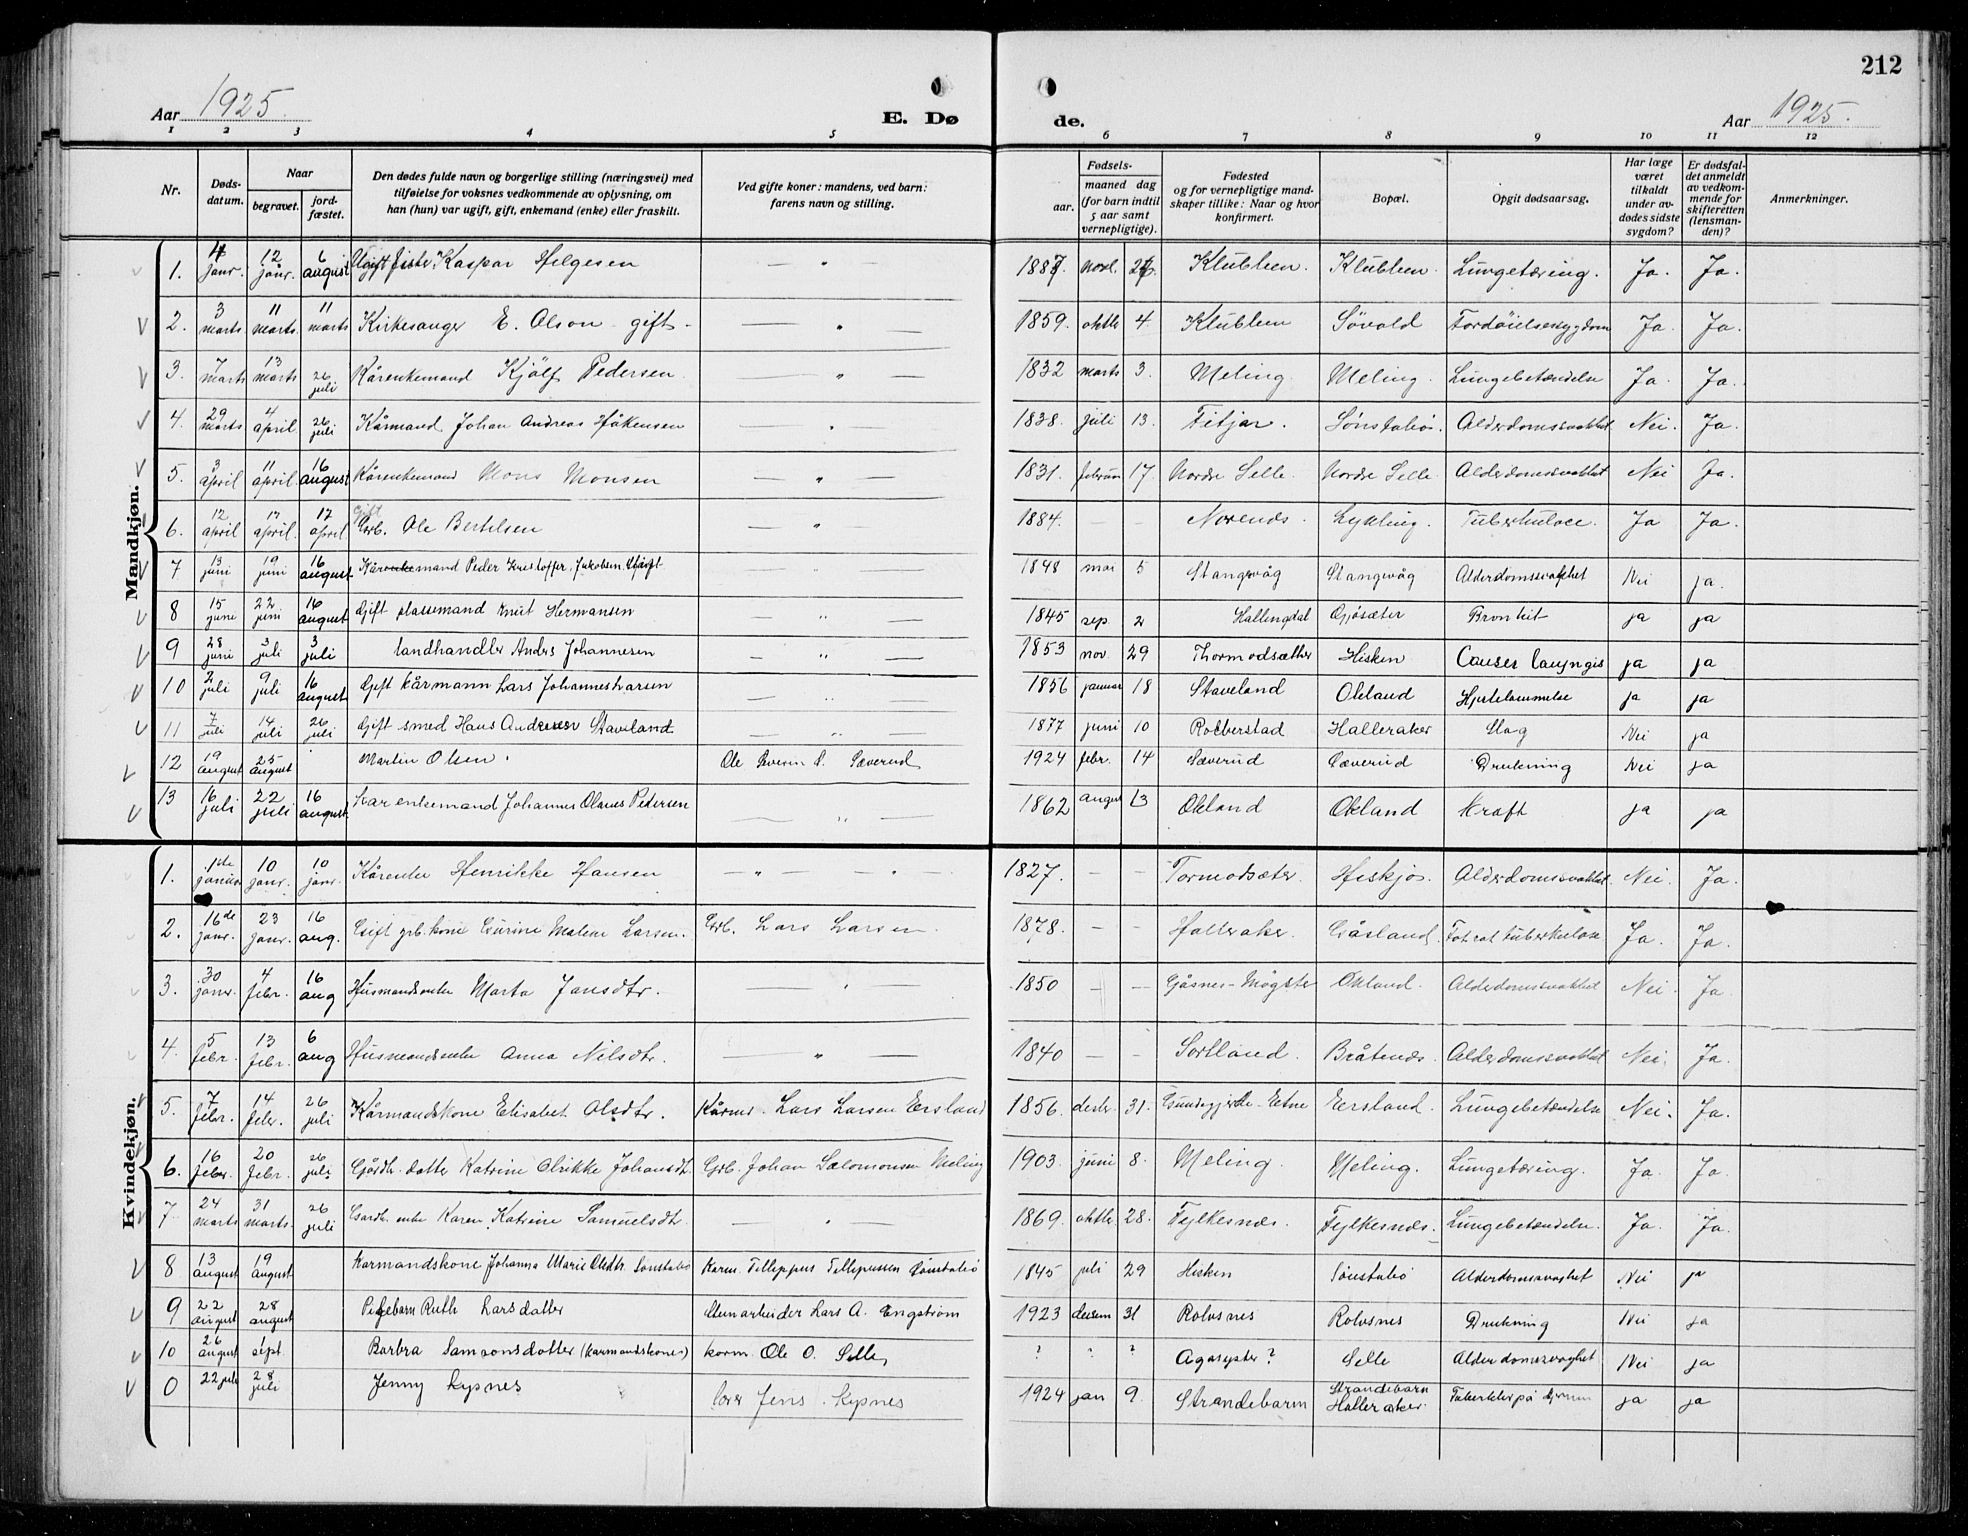 212
Aar 1925.
E. Dø de.
Aar 1925.
1 2 3 4 5 6 7 8 9 10 11 12
Nr.
Døds-datum.
Naar
begravet.
jord-fæstet.
Den dødes fulde navn og borgerlige stilling (næringsvei) med tilføielse for voksnes vedkommende av oplysning, om han (hun) var ugift, gift, enkemand (enke) eller fraskilt.
Ved gifte koner: mandens, ved barn: farens navn og stilling.
Fødsels-
aar.
maaned dag
(for barn indtil 5 aar samt vernepligtige).
Fødested og for vernepligtige mandskaper tillike: Naar og hvor konfirmert.
Bopæl.
Opgit dødsaarsag.
Har læge været tilkaldt under avdødes sidste sygdom?
Er dødsfaldet anmeldt av vedkommende for skifteretten (lensmanden)?
Anmerkninger.
Mandkjøn.
1. 4 janr. 12 janr. 6 august Ugift fisker Kaspar Helgesen — " — 1887. novl. Klubben. Klubben. Lungetæring. Ja. Ja.
2. 3 marts 11 marts. 11 marts Kirkesanger E. Olson gift — " — 1859. oktbr 4. Klubben Søvold Fordøielsessygdom Ja. Ja.
3. 7 marts 13 marts 26 juli Kårenkemand Kjölf Pedersen. — " — 1832 marts 3. Meling. Meling. Lungebetændelse Ja. Ja.
4. 29 marts 4 april 26 juli Kårmand Johan Andreas Håkensen — " — 1838. juli 13. Fitjar. Sønstabø. Alderdomssvakhet Nei. Ja.
5. 3 april 11 april. 16 august Kårenkemand Mons Monsen — " — 1831. februar 17. Nordre Selle. Nordre Selle. Alderdomssvakhet Nei Ja.
6. 12 april 17 april. 17 april Gift Grb. Ole Bertelsen — " — 1884. — — Norends. Lykling. Tuberkulose. Ja Ja.
7 13 juni 19 juni 16 august Kårenkemand Peder Kristoffer Jakobsen Ugift — " — 1848 mai 5 Stangevåg Stangevåg Alderdomssvakhet Nei ja.
8 15 june 22 juni 16 august Gift plassemand Knut Hermansen — " — 1845 sep. 2 Hallingdal Gjøsæter Bronkit ja ja
9 28 juni 3 juli 3 juli landhandler Anders Johannesen — " — 1853 nov. 29 Thormodsæther Hisken Cancer laryngis ja ja
10 2 juli 9 juli 16 august Gift kårmann Lars Johannes Larsen — " — 1856 januar 18 Staveland Økland Hjertelammelse ja ja
11 7 juli 14 juli 26 juli Gift smed Hans Andreas Staveland — " — 1877 juni 10 Robberstad Halleraker Slag Nei ja
12 19 august 25 august Martin Olsen. Ole Severin S. Sæverud 1924 febr. 14 Sæverud Sæverud Drukning Nei ja
13 16 juli 22 juli 16 august. kar enkemand Johannes Olaves Pedersen — " — 1862 august 13 Økland Økland Kræft ja ja
Kvindekjøn.
1. 1de januar 10 janr. 10 janr. Kårenke Henrikke Hansen — " — " — 1827. — — Tormodsæter. Hiskjo. Alderdomssvakhet. Nei. Ja.
2. 16de janr. 23 janr. 16 aug. Gift grb. kone Gurine Malene Larsen. Grb. Lars Larsen. 1878. — — Halleraker. Gåsland. Fot rot tuberkulose Ja. Ja.
3. 30 janr. 4 febr. 16 aug Husmandsenke Marta Jansdtr. — " — 1850 — — Gåsnes-Møgster Økland. Alderdomssvakhet Nei. Ja.
4. 5 febr. 13 febr. 6 aug Husmandsenke Anna Nilsdtr. — " — 1840 — — Sortland. Bråtenes. Alderdomssvakhet Nei. Ja.
5. 7 febr. 14 febr. 26 juli Kårmandskone Elisabet Olsdtr. Kårmd. Lars Larsen Eersland 1856. desbr. 31. Gundegjerde-Etne Eersland. Lungebetændelse Nei. Ja.
6. 16 febr. 20 febr. 26 juli. Gårdb. datter Katrine Olrikke Johansdtr. Grb. Johan Salomonsen Meling 1903. juni 8. Meling. Meling. Lungetæring. Ja. Ja.
7 24 marts 31 marts. 26 juli Gardb. enke Karen Katrine Samuelsdtr. — " — 1869. oktbr. 28. Fylkesnæs. Fylkesnæs. Lungebetændelse. Ja. Ja.
8 13 august 19 august Karmandskone Johanna Marie Olsdtr. Sønstabø Karm. Tilleppus Tillepussen Sønstabø 1845 juli 29 Hisken Sønstabø Alderdomssvaghet Nei ja
9 22 august 28 august Pigebarn Ruth Larsdatter Stenarbeider Lars A. Engstrøm 1923 desem 31 Rolvsnes Rolvsnes Drukning Nei ja
10 26 august 1 sept. Barbra Samsonsdatter (karmandskone) karm. Ole O. Selle, ? ? ? Agasyster? Selle Alderdomssvaghet Nei ja
0 22 juli 28 juli Jenny Lypnes Jens Lypnes 1924 jan 9. Strandebarm Strandebarm Halleraker Tuberkler på ja ja